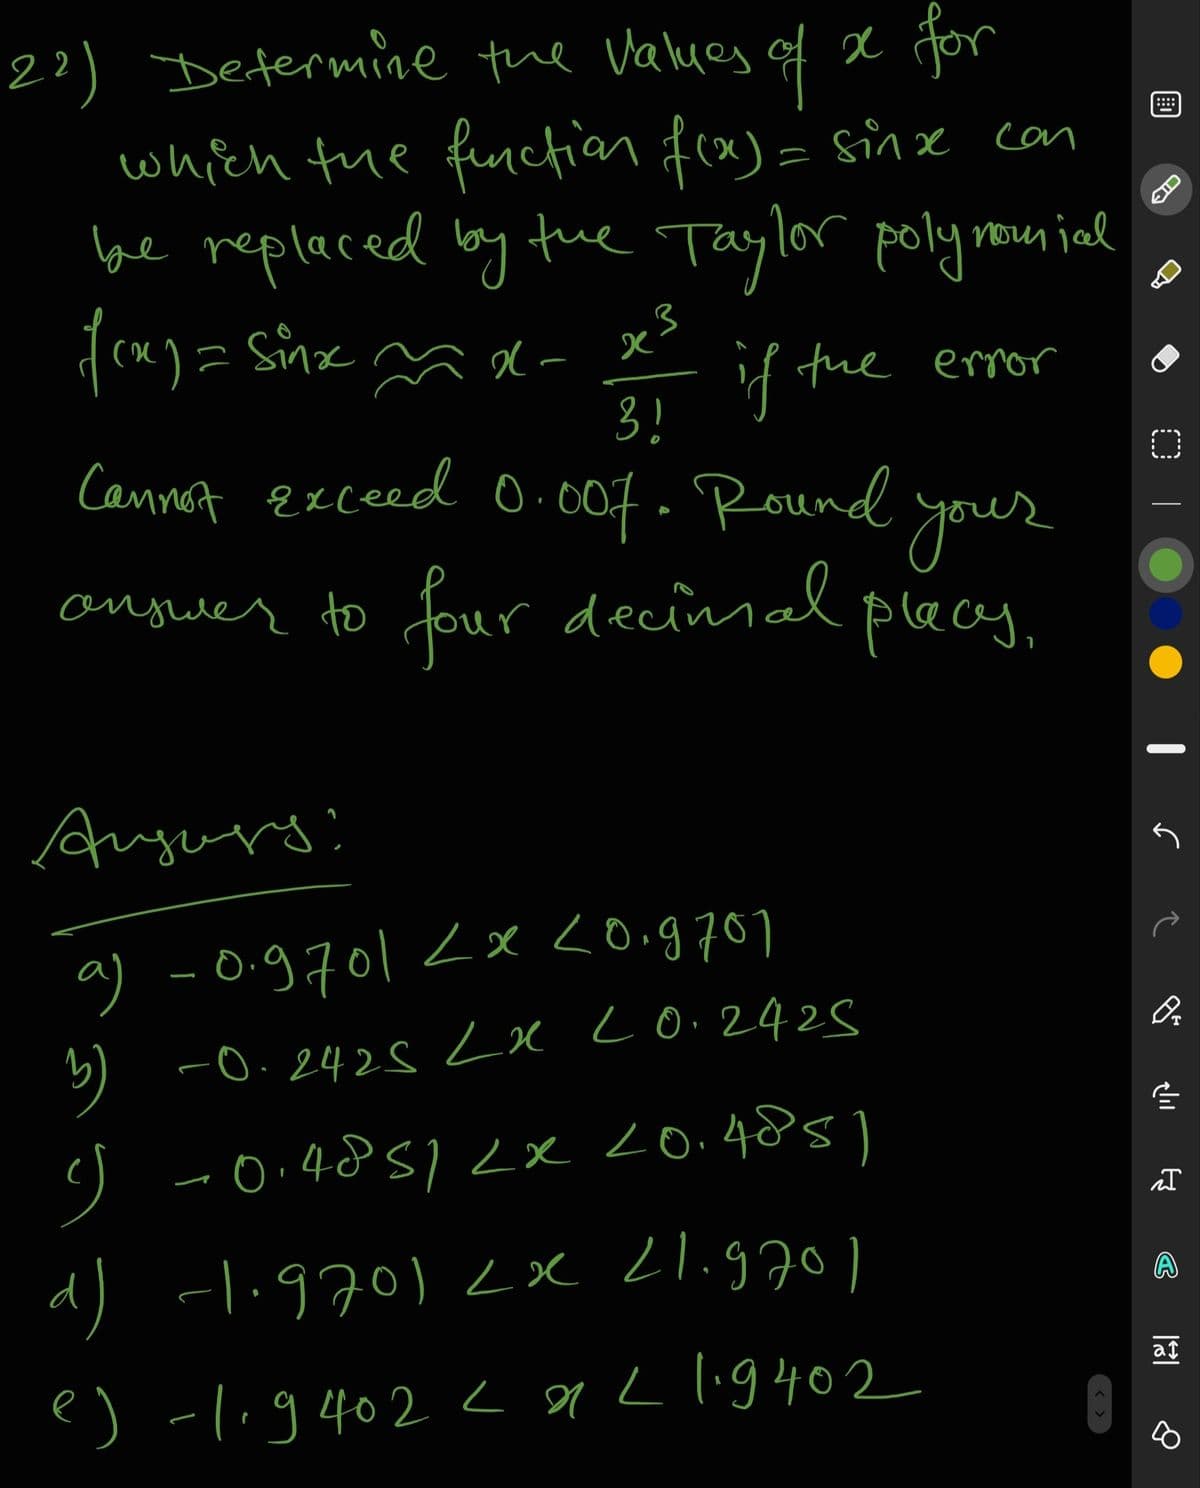 22) Determine the values of x for
which the function f(x) = sinx can
be replaced by the Taylor polynomial
f(x) = sinx ≈ x - x³/3! if the error
Cannot exceed 0.007. Round your
answer to four decimal places.
Answers:
a) -0.9701 < x < 0.9701
b) -0.2425 < x < 0.2425
c) -0.4851 < x < 0.4851
d) -1.9701 < x < 1.9701
e) -1.9402 < x < 1.9402